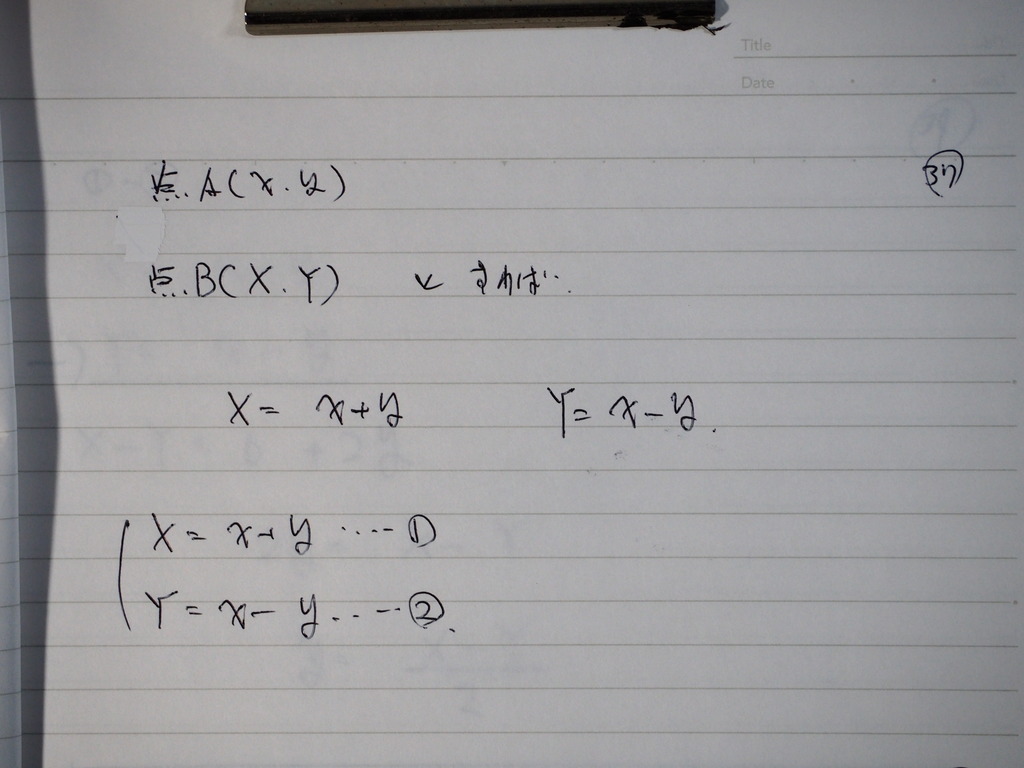 Title
Date
㊲
点.A(x.y)
点.B(X.Y) とすれば..
X= x+y Y= x-y.
X= x+y ····-①
Y= x-y..--②.